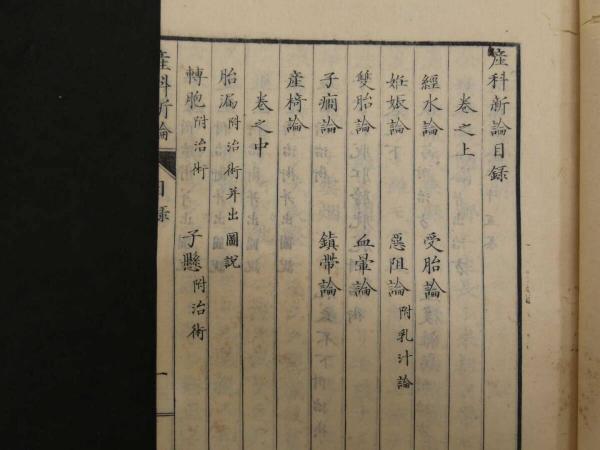 産科新論目録
卷之上
經水論 受胎論
妊娠論 惡阻論 附乳汁論
雙胎論 血暈論
子癇論 鎮帶論
産椅論
卷之中
胎漏 附治術并出圖説
轉胞 附治術 子懸 附治術
産科新論 目録 一